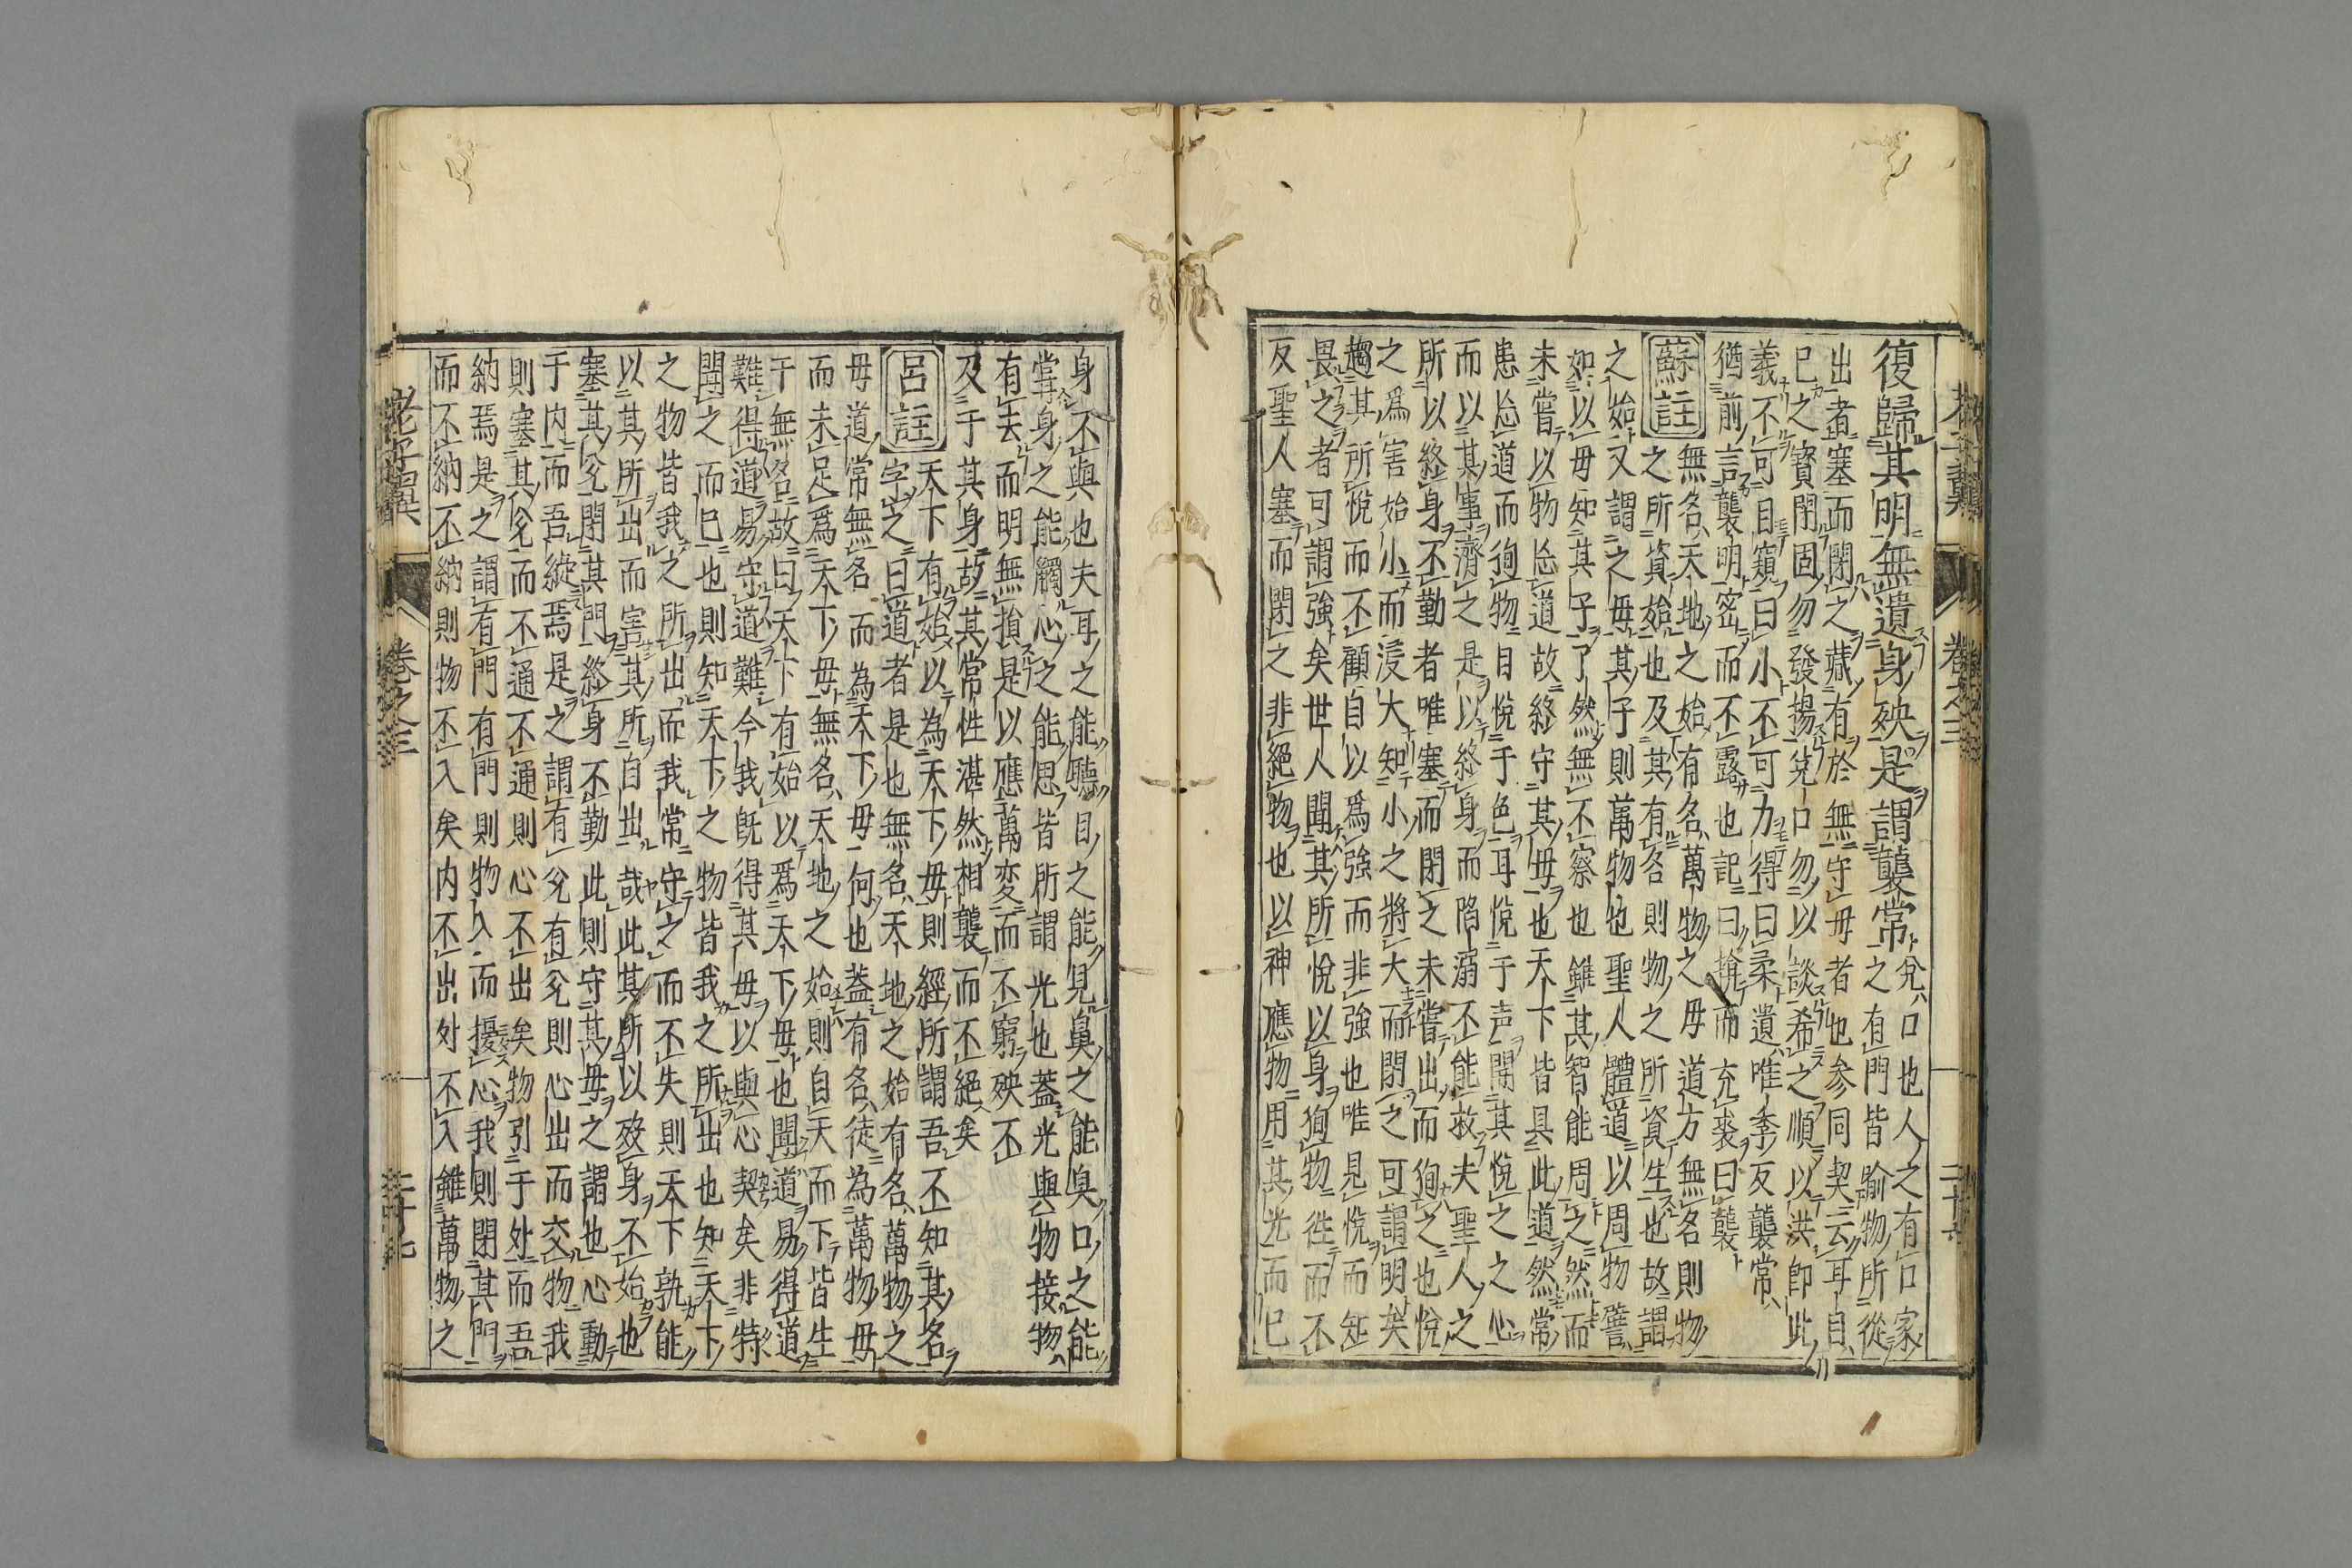 復歸其明無遺身殃是謂襲常
兌口也人之有口家
之有門皆喻物所從
出者塞而閉之藏有於無守母者也参同契云耳目
巳之寳閉固勿發揚兌口勿以談希之順以洪即此
義不可目窺曰小不可力得曰柔遺唯季反襲常
猶前言襲明密而不露也記曰揜而充裘曰襲
蘇註
無名天地之始有名萬物之母道方無名則物
之所資始也及其有名則物之所資生也故謂
之始又謂之母其子則萬物也聖人體道以周物譬
如以母知其子了然無不察也雖其智能周之然而
未嘗以物忘道故終守其母也天下皆具此道然常
患忘道而徇物目悅于色耳悅于声開其悅之之心
而以其事濟之是以終身而陷溺不能救夫聖人之
所以終身不勤者唯塞而閉之未嘗出而徇之也悅
之爲害始小而浸大知小之將大而閉之可謂明矣
趨其所悅而不顧自以爲強而非強也唯見悅而知
畏之者可謂強矣世人開其所悅以身徇物徃而不
反聖人塞而閉之非絕物也以神應物用其光而巳
身不與也夫耳之能聽目之能見臭之能臭口之能
甞身之能觸心之能思皆所謂光也蓋光與物接物
有去而明無損是以應萬変而不窮殃不
及于其身故其常性湛然相襲而不絕矣
呂註
天下有始以為天下母則經所謂吾不知其名
字之曰道者是也無名天地之始有名萬物之
母道常無名而為天下母何也蓋有名徒為萬物母
而未足爲天下母無名天地之始則自天而下皆生
于無名故曰天下有始以爲天下母也聞道易得道
難得道易守道難今我旣得其母以與心契矣非特
聞之而巳也則知天下之物皆我之所出也知天下
之物皆我之所出而我常守之而不失則天下孰能
以其所出而害其所自出哉此其所以歿身不殆也
塞其兌閉其門終身不勤此則守其母之謂也心動
于内而吾縱焉是之謂有兌有兌則心出而交物我
則塞其兌而不通不通則心不出矣物引于外而吾
納焉是之謂有門有門則物入而擾心我則閉其門
而不納不納則物不入矣内不出外不入雖萬物之
卷之三
二十六
老子翼
卷之三
二十七